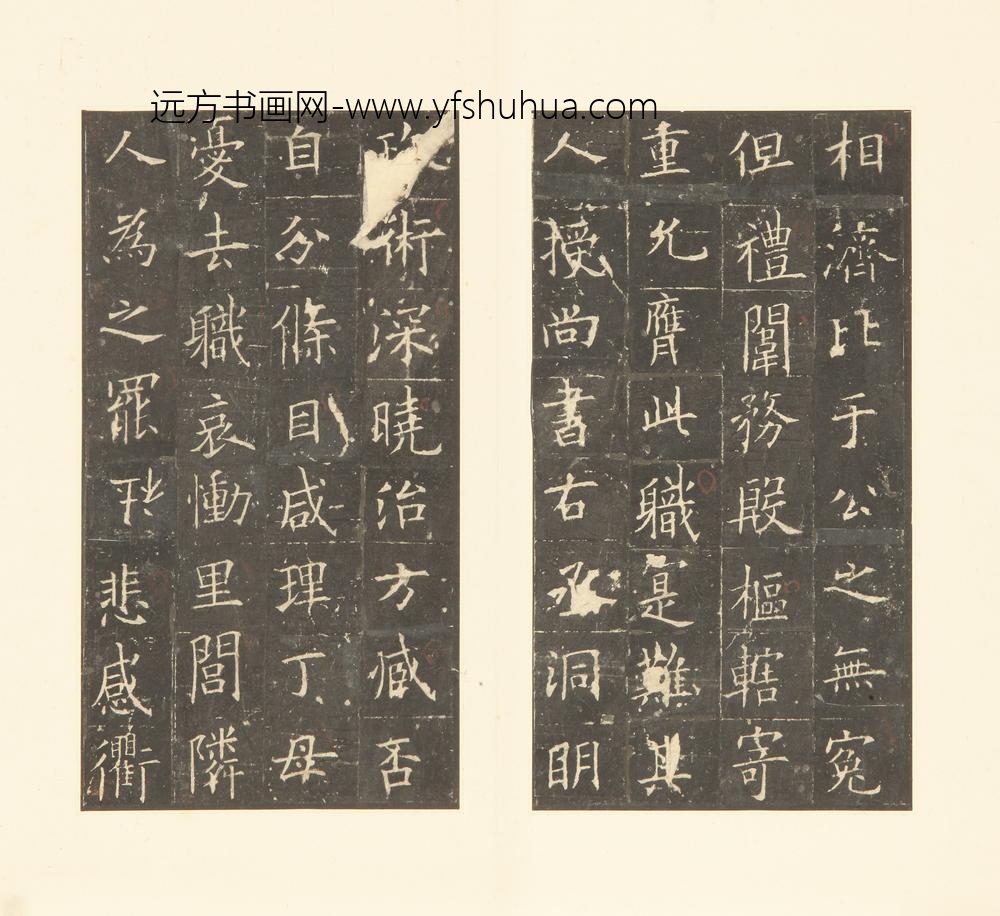 远方书画网-www.yfshuhua.com
相濟比于公之無寃
但禮闈務殷樞轄寄
重允膺此職寔難其
人授尚書右丞洞明
政術深曉治方臧否
自分條目咸理丁母
憂去職哀慟里閭隣
人為之罷社悲感衢